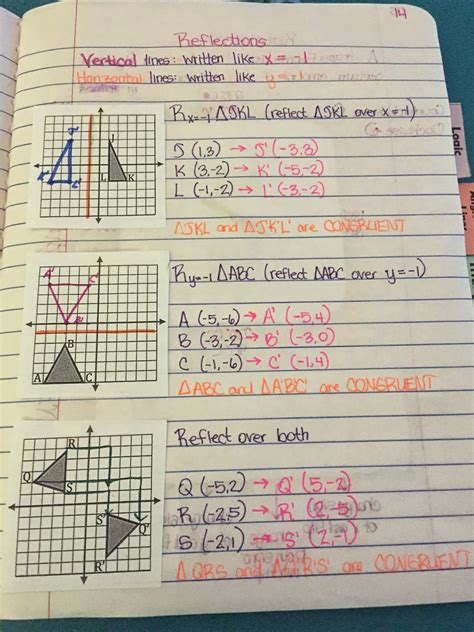 14
Reflections
Vertical lines: written like x = -1
Horizontal lines: written like y = -1
R x=-1 ΔJKL (reflect ΔJKL over x = -1)
J (1,3) → J' (-3,3)
K (3,-2) → K' (-5,-2)
L (-1,-2) → L' (-3,-2)
ΔJKL and ΔJ'K'L' are CONGRUENT
J' K' L' J L K
R y=-1 ΔABC (reflect ΔABC over y = -1)
A (-5,-6) → A' (-5,4)
B (-3,-2) → B' (-3,0)
C (-1,-6) → C' (-1,4)
ΔABC and ΔA'B'C' are CONGRUENT
A' C' B' B A C
Reflect over both
Q (-5,2) → Q' (5,-2)
R (-2,5) → R' (2,-5)
S (-2,1) → S' (2,-1)
ΔQRS and are CONGRUENT
R Q S S' Q' R'
Logic